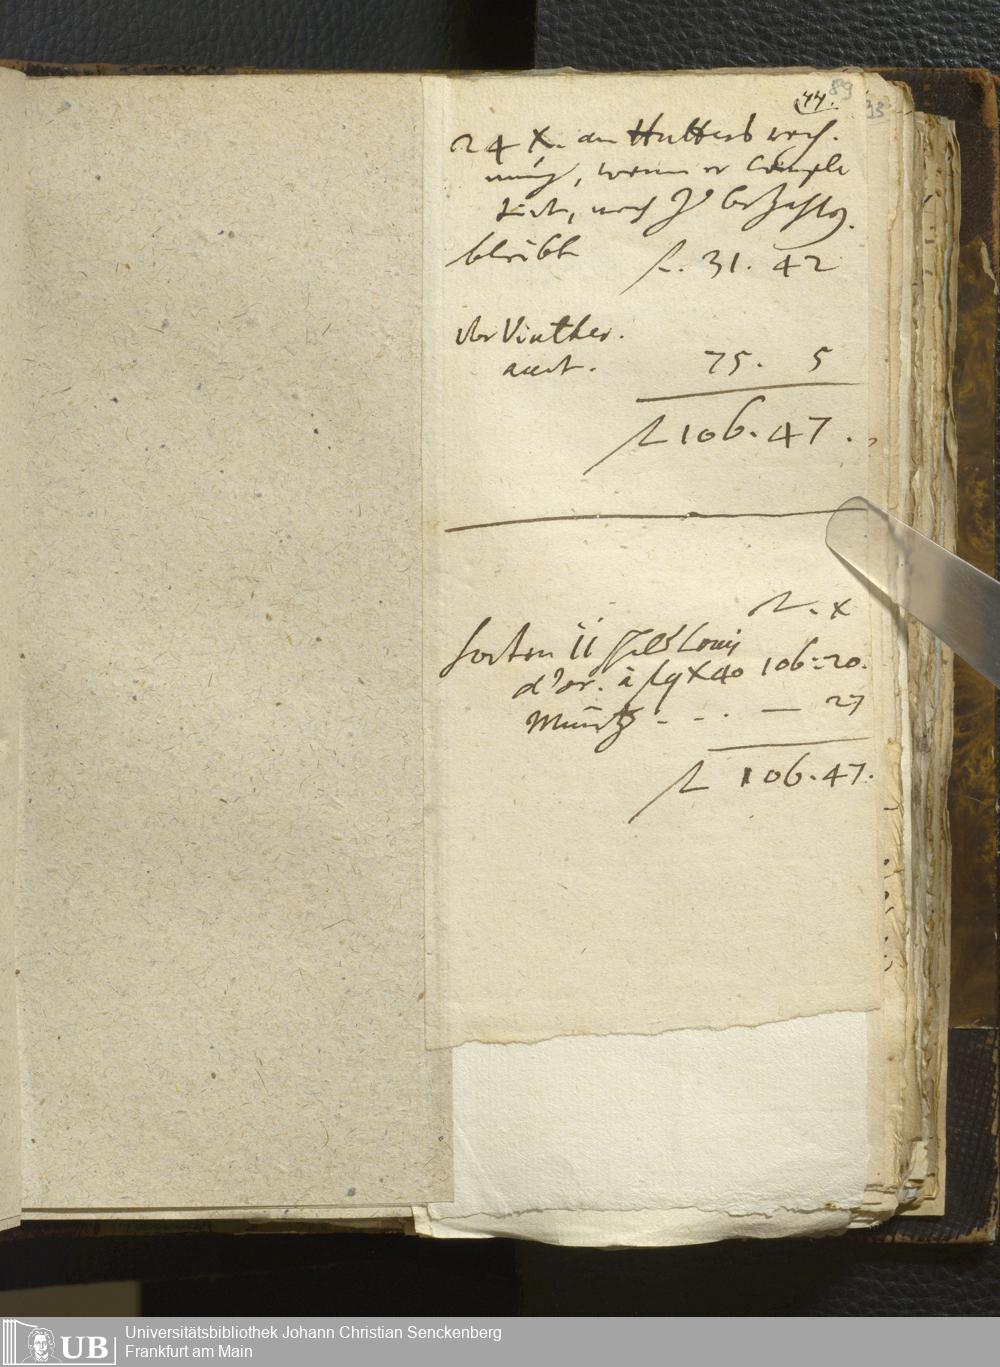 44. 89
93
24 X. an Huthes rech
nung, wenn er comple
tirt, noch zu bezahlen.
bleibt f. 31. 42
der Vinther.
auct. 75. 5
f 106. 47.
f. x
Sorten 11 Louis
d'or. à f 9 X 40 106: 20.
Müntz - - . — 27
f 106. 47.
UB
Universitätsbibliothek Johann Christian Senckenberg
Frankfurt am Main